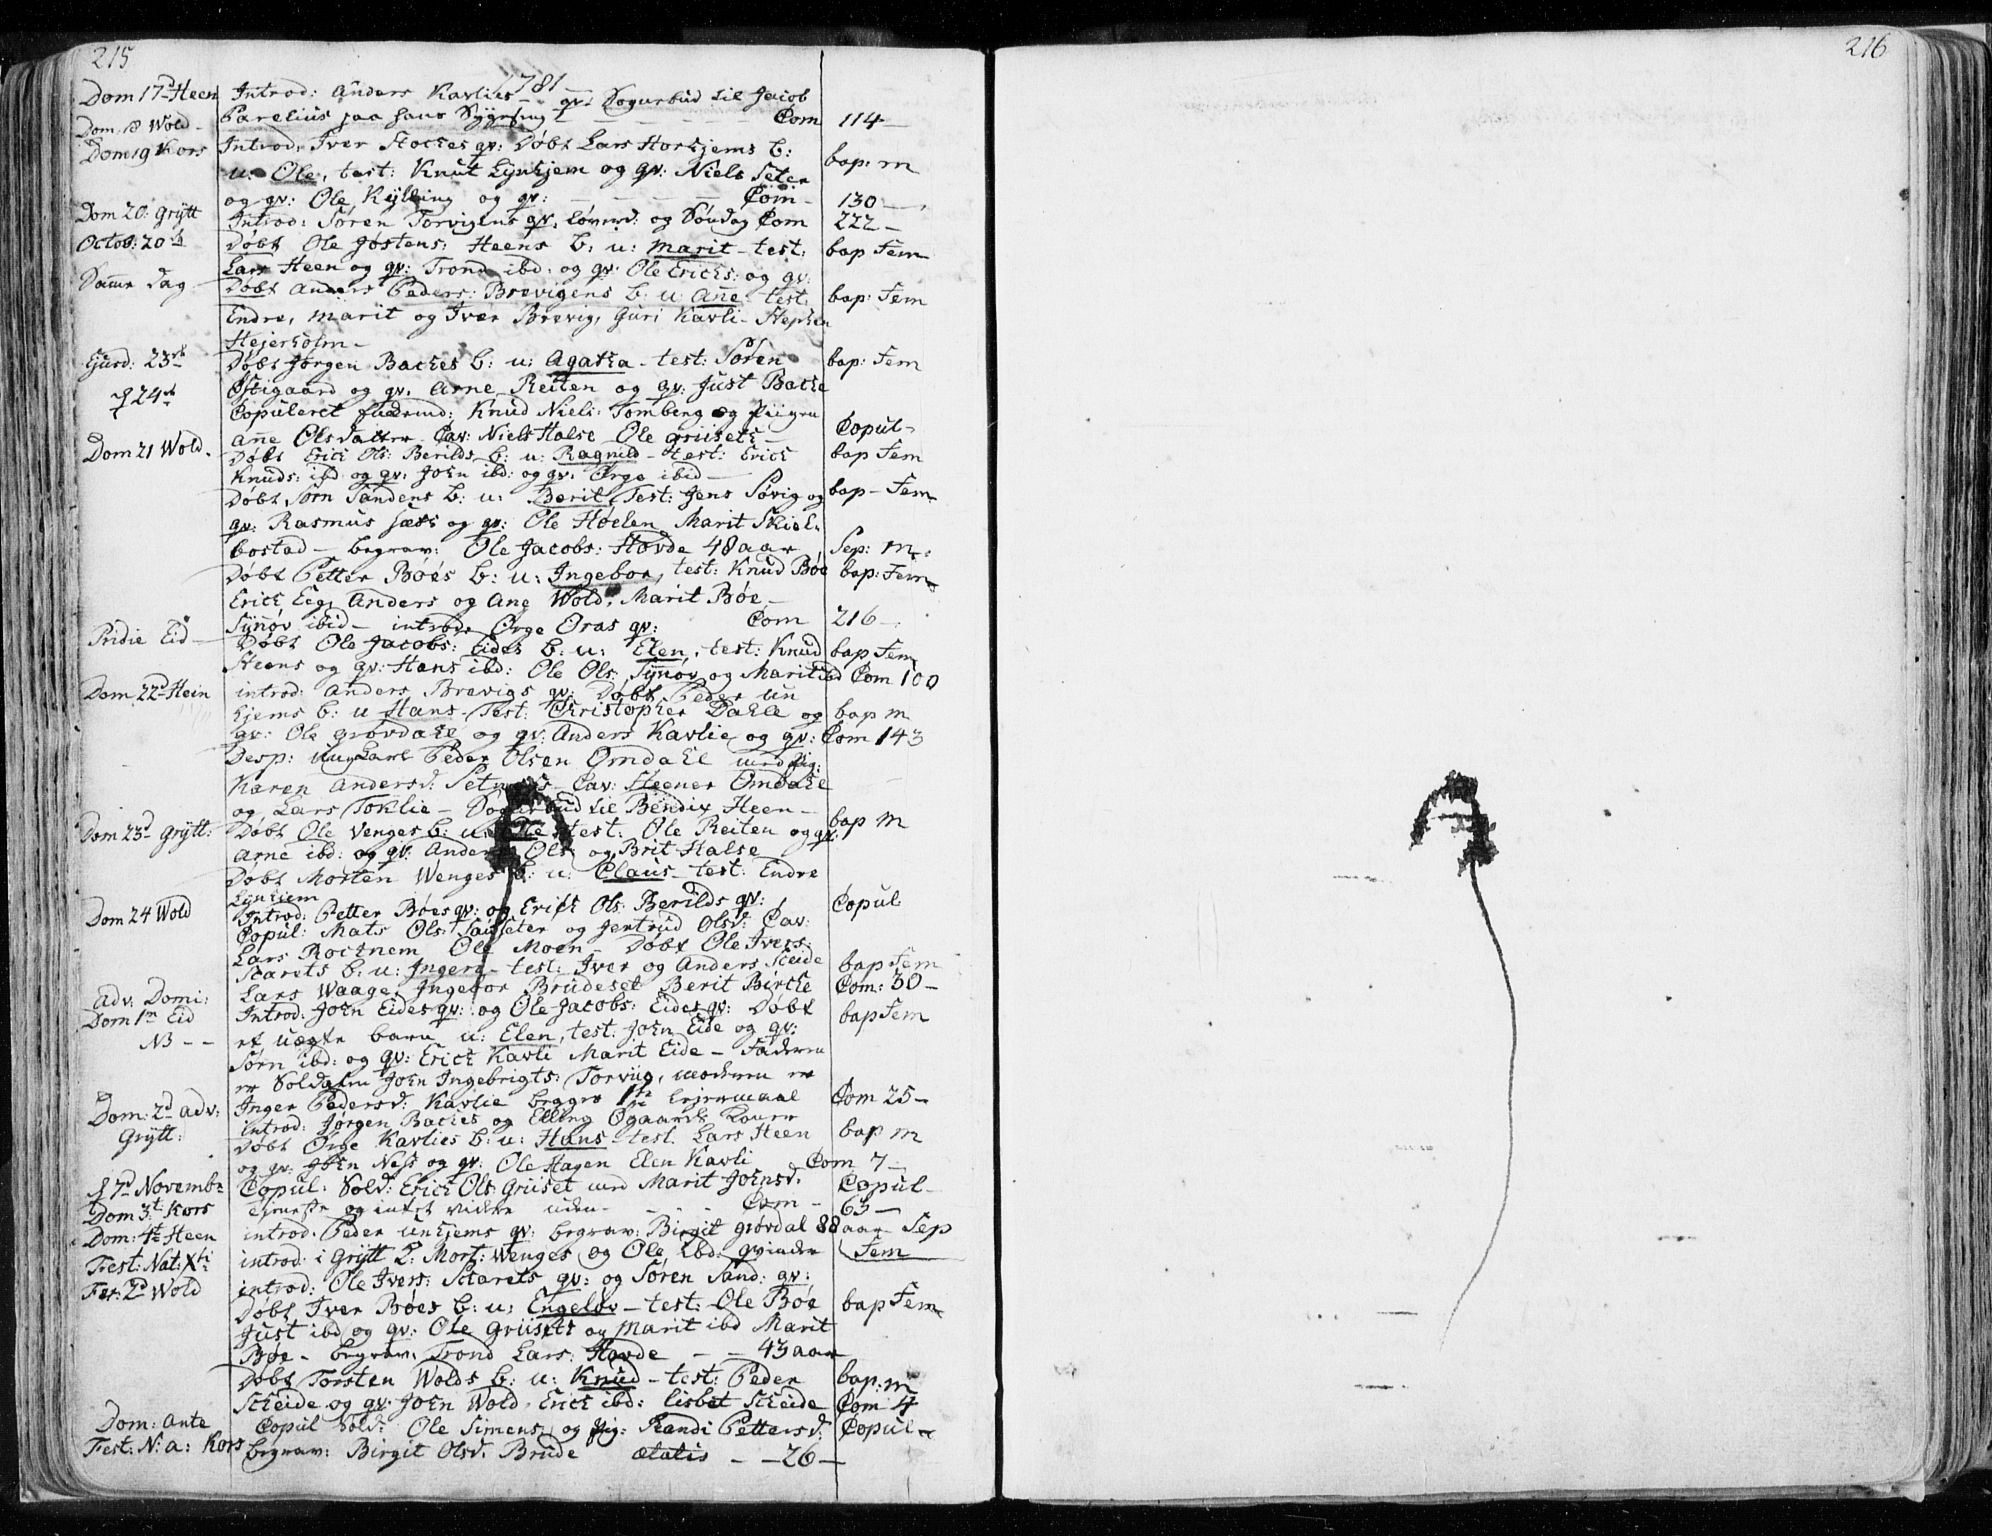 215
1781
Dom 17d Heen Introd: Anders Kavlies qv: Sognebud til Jacob
Dom 18 Wold Parelius paa hans Sygeseng Com 114
Dom 19 Kors Introd: Iver Stokkes qv: Døbt Lars Horhjems b: bap: m
u: Ole, test: Knut Lynhjem og qv: Niels Seter
og qv: Ole Kylling og qv: Com 130
Dom 20: Grytt Introd: Søren Torvigens qv: Løverd: og Søndag Com 222
Octob: 20de Døbt Ole Jøstens: Heens b: u: Marit test: bap Fem
Lars Heen og qv: Trond ibd: og qv: Ole Ericks: og qv:
Samme Dag Døbt Anders Peders: Brevigens b: u: Anne test: bap: Fem
Endre, Marit og Iver Brevig, Guri Kavli Stephen
Hejerholm
23 Døbt Jørgen Backes b: u: Agatha test: Søren bap: Fem
Østigaard og qv: Arne Reiten og qv: Just Backe
24 Copuleret Knud Niels: Tomberg og Piigen
Anne Olsdatter Cav: Niels Halse Ole Grüsets Copul
Dom 21 Wold Døbt Erick Ols: Berilds b: u: Ragnild test: Erick bap Fem
Knuds: ibd og qv: John ibd: og qv: Ørge ibid
Døbt Sørn Sandens b: u: Berit, Test: Jens Søvig og bap Fem
qv: Rasmus Sæth og qv: Ole Høelen Marit Skiel-
bostad begrav: Ole Jacobs: Hovde 48 aar Sep: m:
Døbt Petter Bøes b: u: Ingebor, test: Knud Bøe bap: Fem
Erick Eeg, Anders og Ane Wold, Marit Bøe
Synøv ibid introd: Ørge Oras qv: Com 216
Pridie Eid Døbt Ole Jacobs: Eides b: u: Elen, test: Knud bap Fem
Heens og qv: Hans ibd: Ole Ols: Synøv og Marit ibd Com 100
Dom 22d Hein introd: Anders Brevigs qv: Døbt Peder Un
hjems b: u Hans Test: Christopher Dahle og bap m
qv: Ole Grøvdahl og qv: Anders Kavlie og qv: Com 143
Desp: Peder Olsen Omdahl med Pig:
Karen Andersd: Cav: Steener Omdahl
og Lars Toklie Sognebud til Bendix Heen
Dom 23d Grytt: Døbt Ole Venges b: u: Ole test: Ole Reiten og qv: bap m
Arne ibd: og qv: Anders Ols: og Brit Halse
Døbt Morten Wenges b: u: Claus test: Endre
Lynhiem
Dom 24 Wold Introd: Petter Bøes qv: og Erick Ols: Berilds qv: Copul
Copul: Mats Ols: og Jertrud Olsd: Cav:
Lars Rocknem Ole Moen Døbt Ole Ivers:
Starets b: u: Ingera test: Iver og Anders Sceide bap Fem
Lars Waage, Ingebor Brudeset Berit Bircke Com: 30
Adv: Domi:
Dom 1m Eid Introd: John Eides qv: og Ole Jacobs: Eides qv: Døbt bap Fem
NB et uægte barn u: Elen, test: John Eide og qv:
Sørn ibd: og qv: Erick Kavli Marit Eide Faderen
er Soldaten John Ingebrigts: Torviig, moderen er
Inger Pedersd: Kavlie begges 1te Lejermaal Com 25
Dom: 2d Adv: Introd: Jørgen Backes og Elling Øgaards Koner
Grytt: Døbt Ørge Kavlies b: u: Hans test. Lars Heen bap m
og qv: John Ness og qv: Ole Hagen Elen Kavli Com 7
7d Novembr: Copul: Sold: Erick Ols: Grüset med Marit Johnsd: Copul
Dom 3t: Kors tjeneste og intet videre uden Com 63
Dom: 4t Heen introd: Peder Unhjems qv: begrav: Birgit Grøvdal 88 aar Sep
Fest: Nat: Xti introd: i Grytt 2. Mort: Wenges og Ole ibd: qvinder Fem
Fer: 2d Wold introd: Ole Ivers: Starets qv: og Søren Sand: qv:
Døbt Iver Bøes b: u: Engeløv test: Ole Bøe bap Fem
Just ibd og qv: Ole Grüsets og Marit ibd Marit
Bøe begrav: Trond Lars: Hovde 43 aar
Døbt Torsten Wolds b: u: Knud test: Peder bap: m
Scheide og qv: John Wold Erick ibd: Lisbet Scheide Com 4
Dom: Ante Copul Sold: Ole Simens: og Pig: Randi Pettersd: Copul
Fest: N: a: Kors begrav: Birgit Olsd: Brude ætatis 26
216